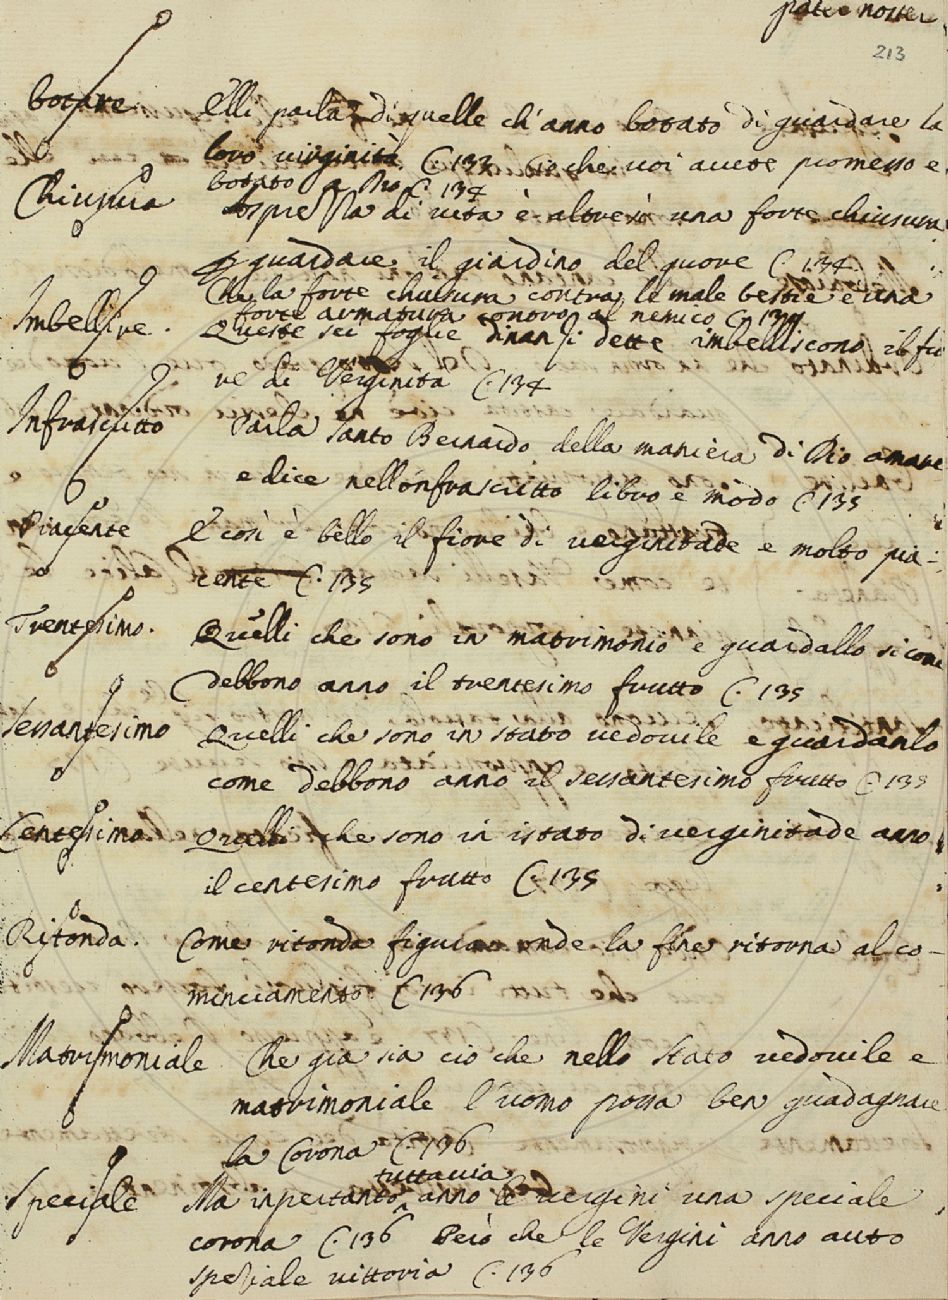 pater noster
213
botare Elli parla di quelle ch'anno botato di guardare la
loro virginità C. 133 Cio che voi avete promesso e
botato a Dio C. 134
Chiusura Aspressa di vita è altresì una forte chiusura
p guardare il giardino del quore C. 134
Che la forte chiusura contra le male bestie e una
forte armatura contro al nemico C. 134
Imbellire. Queste sei foglie dinanzi dette imbelliscono il fio
re di Verginita C. 134
Infrascritto Parla santo Bernardo della maniera di Dio amare
e dice nell'onfrascritto libro e modo C. 135
Piacente E così è bello il fiore di verginitade e molto pia-
cente C. 135
Trentesimo. Quelli che sono in matrimonio e guardallo si come
debbono anno il trentesimo frutto C. 135
Sessantesimo Quelli che sono in stato vedovile e guardanlo
come debbono anno il sessantesimo frutto C. 135
Centesimo Quelli che sono in istato di verginitade anno
il centesimo frutto C. 135
Ritonda. Come ritonda figura onde la fine ritorna al co-
minciamento C. 136
Matrimoniale Che già sia ciò che nello stato vedovile e
matrimoniale l'uomo possa ben guadagnare
la Corona C. 136
tuttavia
Speciale Ma inpertanto anno le vergini una speciale
corona C. 136 Però che le Vergini anno auto
speziale vittoria C. 136